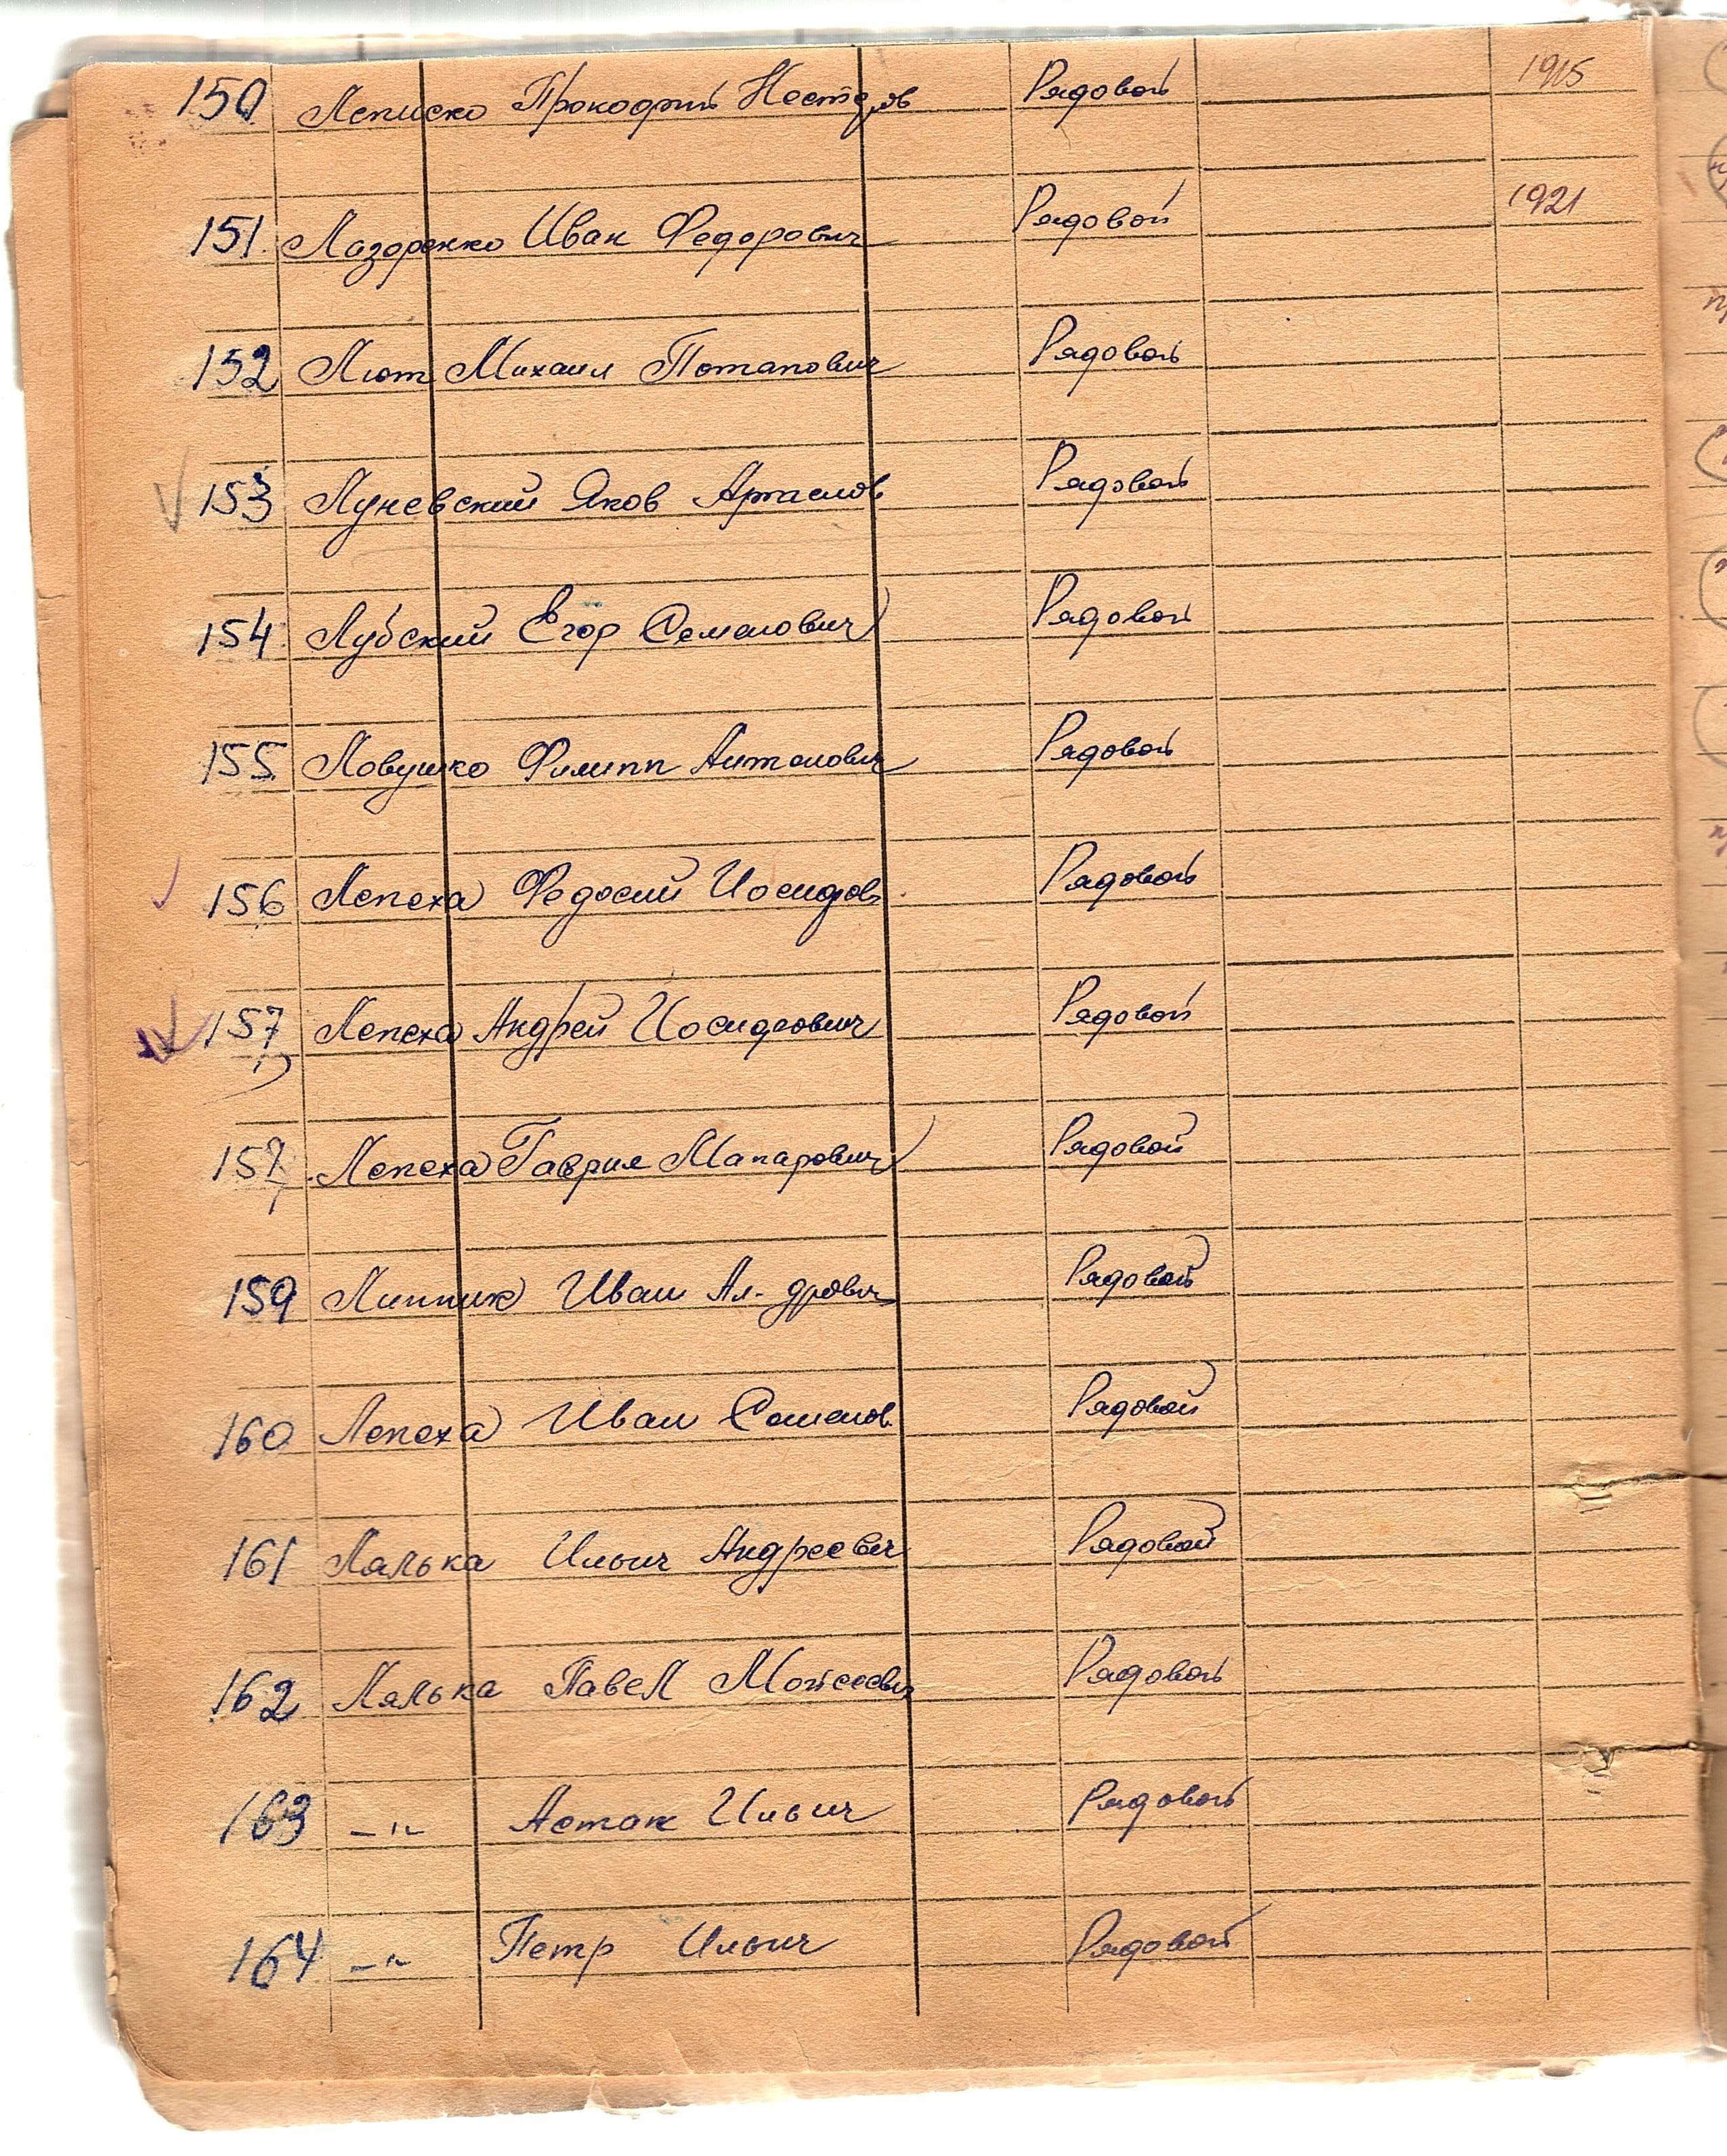 150 Леписко Прокофий Нестеров Рядовой 1915
151. Лазоренко Иван Федорович Рядовой 1921
152 Лют Михаил Потапович Рядовой
153 Луневский Яков Артемов Рядовой
154. Лубский Егор Семенович Рядовой
155 Ловушко Филипп Антонович Рядовой
156 Лепеха Федосий Иосифов Рядовой
157 Лепеха Андрей Иосифович Рядовой
157 Лепеха Гаврил Макарович Рядовой
159 Линник Иван Ал-дрович Рядовой
160 Лепеха Иван Семенов Рядовой
161 Лялька Ильич Андреевич Рядовой
162 Лялька Павел Мойсеевич Рядовой
163 –"– Астап Ильич Рядовой
164 –"– Петр Ильич Рядовой